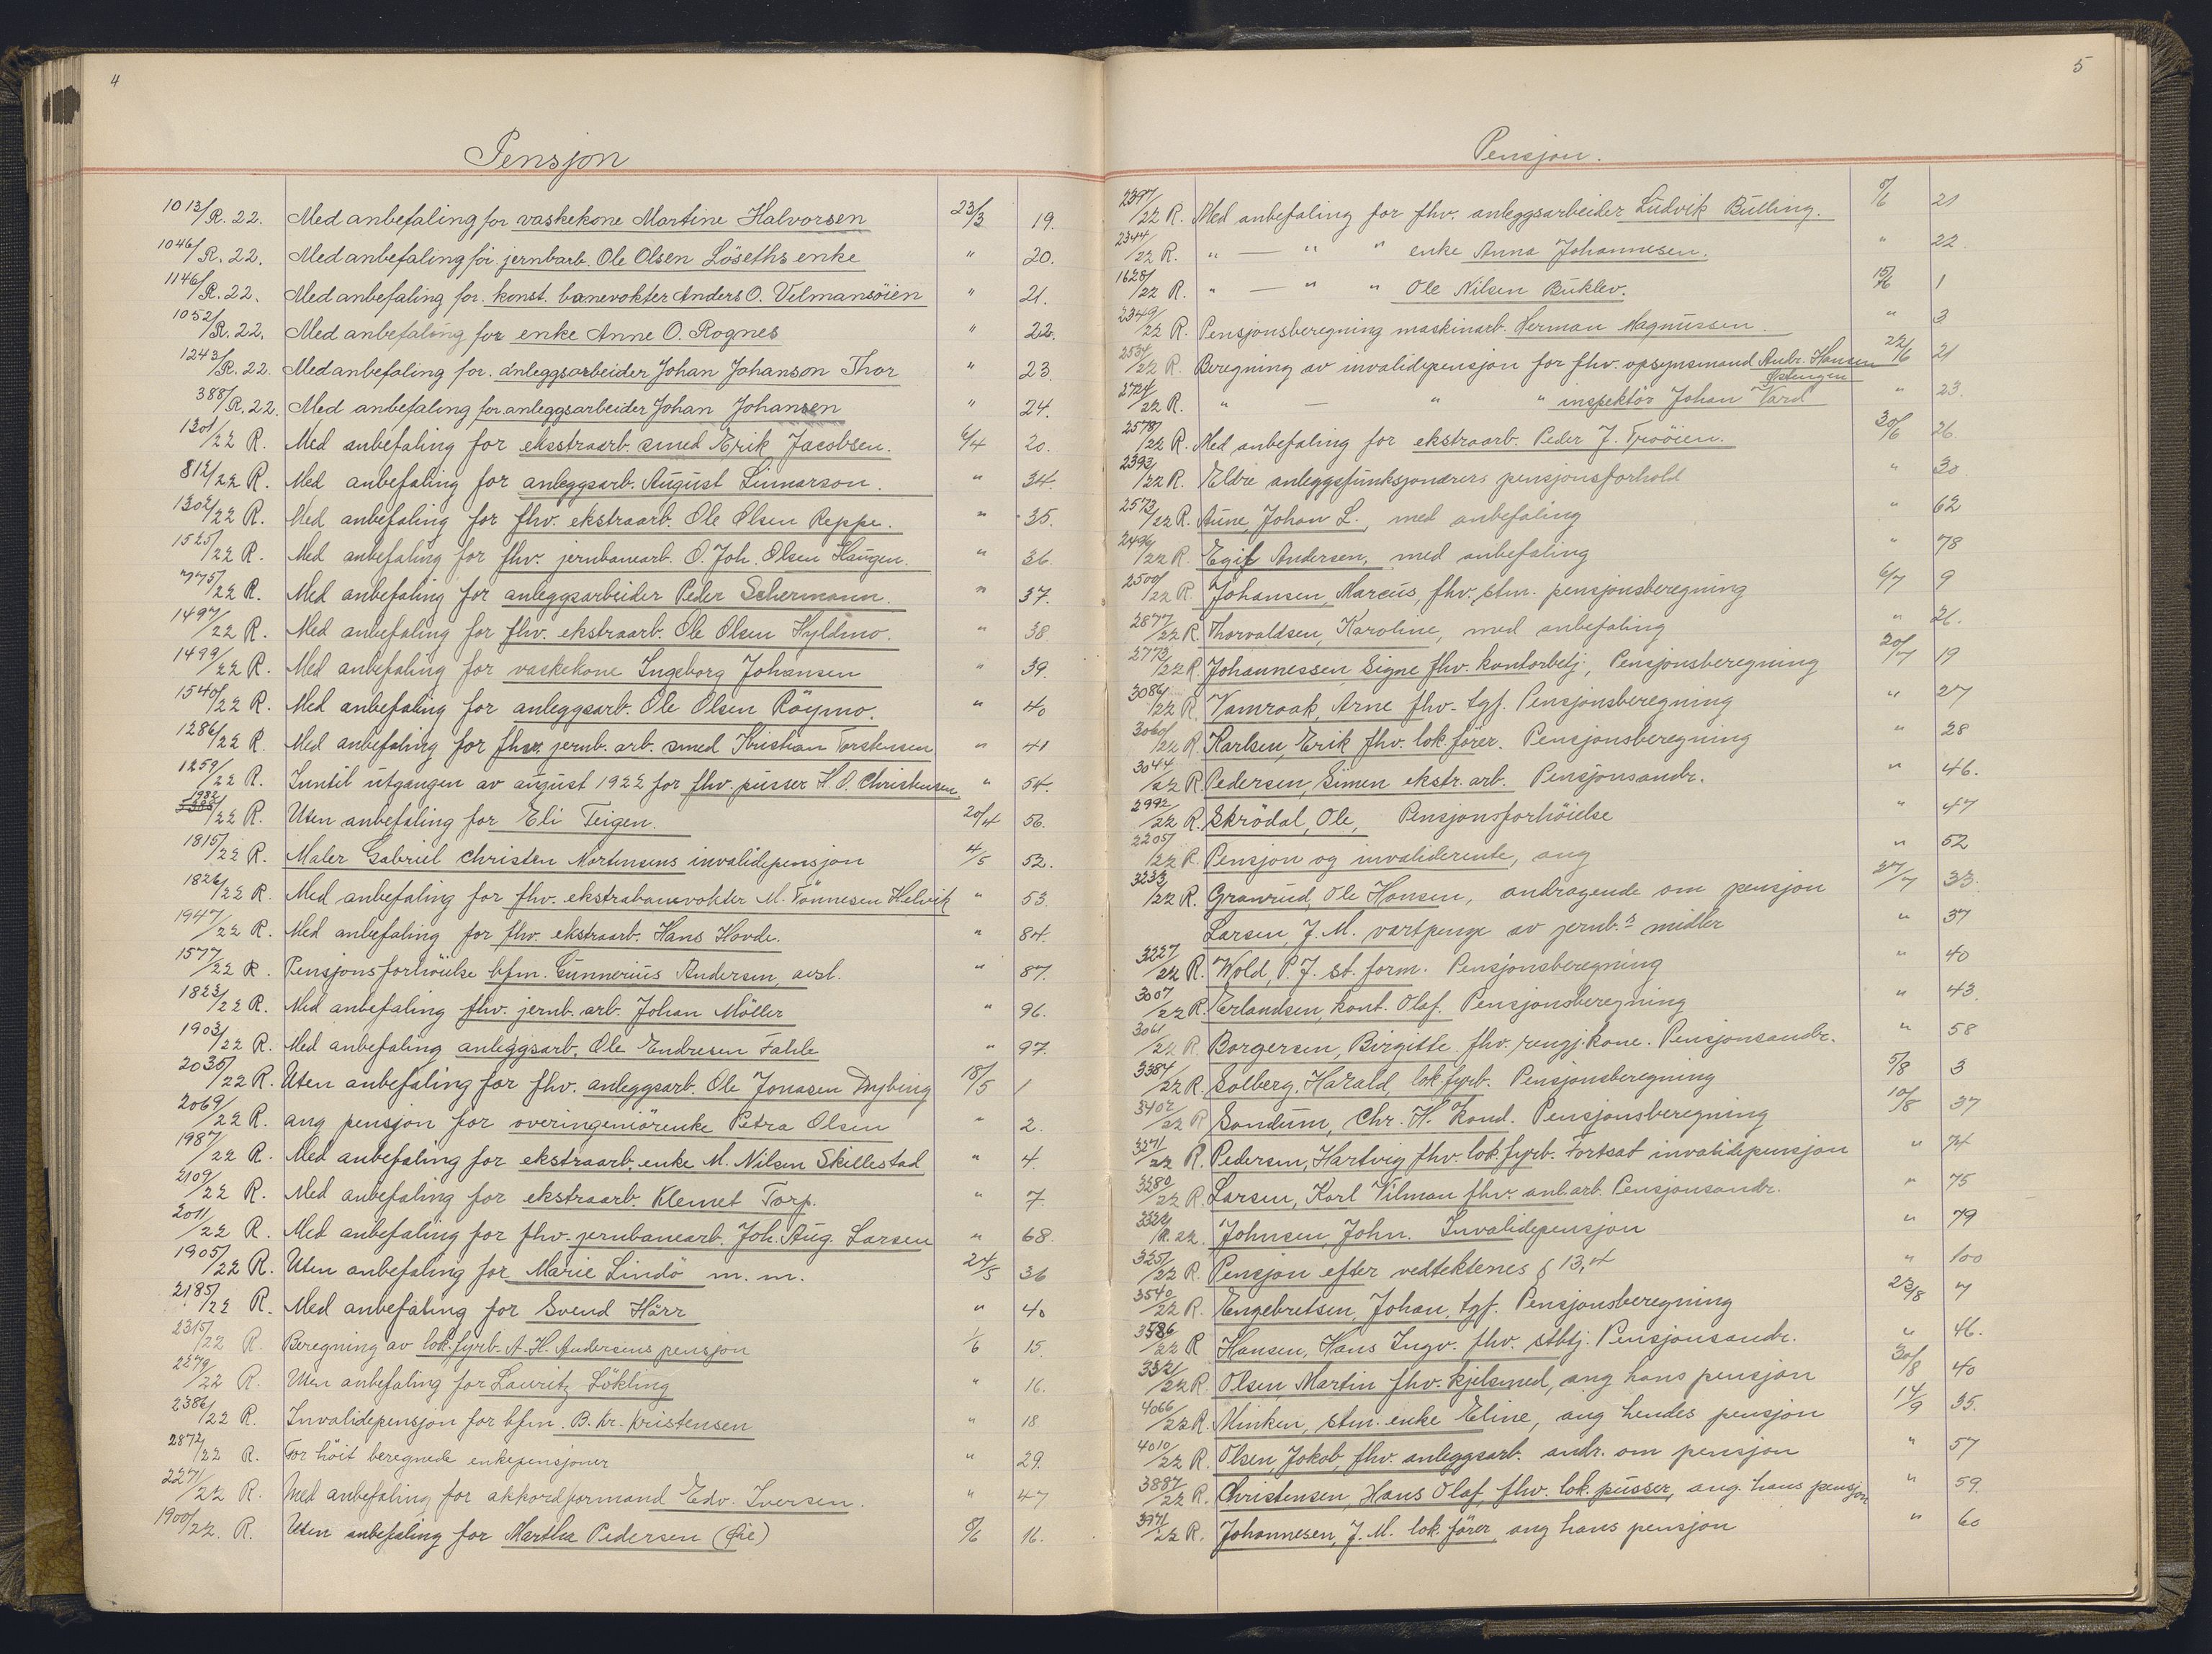 4
Pensjon
1013/R. 22. Med anbefaling for vaskekone Martine Halvorsen 23/3 19.
1046/R. 22. Med anbefaling for jernbarb. Ole Olsen Löseths enke " 20.
1146/R. 22. Med anbefaling for konst. banevokter Anders O. Velmansöien " 21.
1052/R. 22. Med anbefaling for enke Anne O. Rognes " 22.
1243/R. 22. Med anbefaling for anleggsarbeider Johan Johanson Thor " 23.
388/R. 22. Med anbefaling for anleggsarbeider Johan Johansen " 24.
1301/22 R. Med anbefaling for eksstraarb. smed Erik Jacobsen. 6/4 20.
812/22 R. Med anbefaling for anleggsarb. August Linnarson. " 34.
1302/22 R. Med anbefaling for fhv. ekstraarb. Ole Olsen Reppe. " 35.
1525/22 R. Med anbefaling for fhv. jernbanearb. O. Joh. Olsen Haugen. " 36.
775/22 R. Med anbefaling for anleggsarbeider Peder Schermann. " 37.
1497/22 R. Med anbefaling for fhv. ekstraarb. Ole Olsen Hyldmo. " 38.
1499/22 R. Med anbefaling for vaskekone Ingeborg Johansen " 39.
1540/22 R. Med anbefaling for anleggsarb. Ole Olsen Röymo. " 40
1286/22 R. Med anbefaling for fhv. jernb. arb. smed Kristian Torstensen " 41
1259/22 R. Inntil utgangen av august 1922 for fhv. pusser H. O. Christensen " 54.
1982/22 R. Uten anbefaling for Eli Teigen. 20/4 56.
1815/22 R. Maler Gabriel Christen Mortensens invalidepensjon 4/5 52.
1826/22 R. Med anbefaling for fhv. ekstrabanevokter M. Tönnesen Helvik " 53.
1947/22 R. Med anbefaling for fhv. ekstraarb. Hans Hovde. " 84.
1577/22 R. Pensjonsforhöielse bfm. Gunnerius Andersen, avsl. " 87.
1823/22 R. Med anbefaling fhv. jernb. arb. Johan Möller " 96.
1903/22 R. Med anbefaling anleggsarb. Ole Endresen Fahle " 97.
2035/22 R. Uten anbefaling for fhv. anleggsarb. Ole Jonasen Dybing 18/5 1
2069/22 R. ang pensjon for overingeniörenke Petra Olsen " 2.
1987/22 R. Med anbefaling for ekstraarb. enke M. Nilsen Skillestad " 4.
2109/22 R. Med anbefaling for ekstraarb. Klemet Torp. " 7.
2011/22 R. Med anbefaling for fhv. jernbanearb. Joh. Aug. Larsen " 68.
1905/22 R. Uten anbefaling for Marie Lindö m. m. 24/5 36
2185/22 R. Med anbefaling for Svend Härr " 40
2315/22 R. Beregning av lok. fyrb. A. H. Andersens pensjon 1/6 15.
2279/22 R. Uten anbefaling for Lauritz Lökling " 16.
2386/22 R. Invalidepensjon for bfm. B. Kr. Kristensen " 18
2872/22 R. For höit beregnede enkepensjoner " 29.
2271/22 R. Med anbefaling for akkordformand Edv. Iversen. " 47
1900/22. R. Uten anbefaling for Martha Pedersen 8/6 16.
5
Pensjon.
2397/22 R. Med anbefaling for fhv. anleggsarbeider Ludvik Bulling. 8/6 21
2344/22 R. " — " " enke Anna Johannesen. " 22.
1628/22 R. " — " " Ole Nilsen Buklev. 15/6 1
2349/22 R. Pensjonsberegning maskinarb. Herman Magnussen. " 3
2534/22 R. Beregning av invalidepensjon for fhv. opsynsmand Andr. Hansen 22/6 21
2724/22 R. " — " " inspektör Johan Vard " 23.
2578/22 R. Med anbefaling for ekstraarb. Peder J. Trööien. 30/6 26
2393/22 R. Eldre anleggsfunksjonærers pensjonsforhold " 30
2573/22 R. Aune, Johan L., med anbefaling " 62
2496/22 R. Egil Andersen, med anbefaling " 78
2500/22 R. Johansen, Marcus, fhv. stm. pensjonsberegning 6/7 9
2877/22 R. Thorvaldsen, Karoline, med anbefaling " 26.
2773/22 R. Johannessen Signe fhv. kontorbetj., Pensjonsberegning 20/7 19
3086/22 R. Vamraak, Arne fhv. tgf. Pensjonsberegning " 27
3060/22 R. Karlsen, Erik fhv. lok. förer. Pensjonsberegning " 28
3044/22 R. Pedersen, Simen ekstr. arb. Pensjonsandr. " 46.
2992/22 R. Skrödal, Ole, Pensjonsforhöielse " 47
2205/22 R. Pensjon og invaliderente, ang " 52
3233/22 R. Granrud, Ole Hansen, andragende om pensjon 27/7 33.
Larsen, J. M. vartpenge av jernb.s midler " 37
3227/22 R. Wold, P. J. st. form. Pensjonsberegning " 40
3007/22 R. Erlandsen, kont. Olaf. Pensjonsberegning " 43.
3061/22 R. Borgersen, Birgitte fhv. rengj. kone. Pensjonsandr. " 58
3384/22 R. Solberg, Harald, lok. fyrb. Pensjonsberegning 5/8 3
3402/22 R Sondum, Chr. H. Kond. Pensjonsberegning 10/8 37
3271/22 R. Pedersen, Hartvig fhv. lok. fyrb. Fortsat invalidepensjon " 74
3280/22 R. Larsen, Karl Vilman fhv. anl. arb. Pensjonsandr. " 75
3324/R. 22. Johnsen, John. Invalidepensjon " 79
3251/22 R. Pensjon efter vedtektenes § 13,4 " 100
3540/22 R. Engebretsen, Johan, tgf. Pensjonsberegning 23/8 7
3586/22 R Hansen, Hans Ingv. fhv. stbtj. Pensjonsandr. " 46.
3321/22 R. Olsen, Martin fhv. kjelsmed, ang hans pensjon 30/8 40
4066/22 R. Minken, stm. enke Eline, ang hendes pensjon 14/9 35.
4010/22 R. Olsen, Jokob, fhv. anleggsarb. andr. om pensjon " 57
3887/22 R. Christensen, Hans Olaf, fhv. lok. pusser, ang. hans pensjon " 59.
3971/22 R. Johannesen, J. M. lok. förer ang hans pensjon " 60